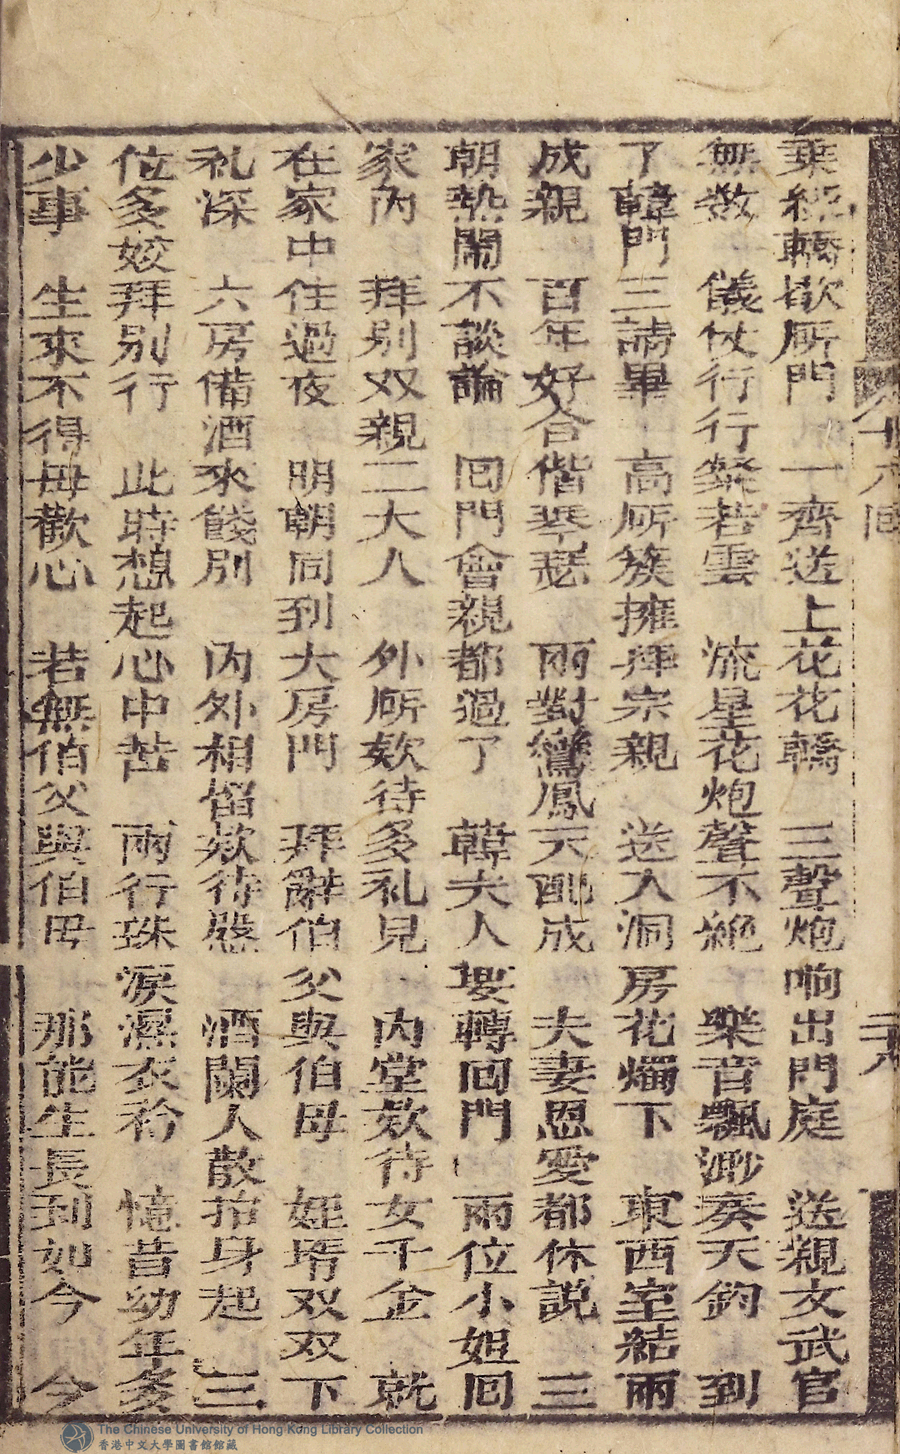 乘經轎欲所門　一齊送上花花轎　三聲炮响出門庭　送親文武官
無数　儀仗行行鬃若雲　流星花炮聲不絶　樂音飄渺奏天鈞　到
了韓門三請畢　高所簇擁拜宗親　送入洞房花燭下　東西室結兩
成親　百年好合偕琴瑟　兩對鸞鳳天配成　夫妻恩愛都休説　三
朝熱鬧不談論　囘門會親都過了　韓夫人要轉囘門　兩位小姐囘
家內　拜别双親二大人　外所欵待多礼見　內堂欵待女千金　就
在家中住過夜　明朝同到大房門　拜辭伯父與伯母　姪壻双双下
礼深　六房備酒來餞别　內外相㕑欵待慇　酒闌人散抬身起　三
位多姣拜别行　此時想起心中苦　兩行珠淚濕衣衿　憶昔幼年多
少事　生來不得母歡心　若無伯父與伯母　那能生長到如今　今
十六囘
二十八
The Chinese University of Hong Kong Library Collection
香港中文大學圖書館館藏